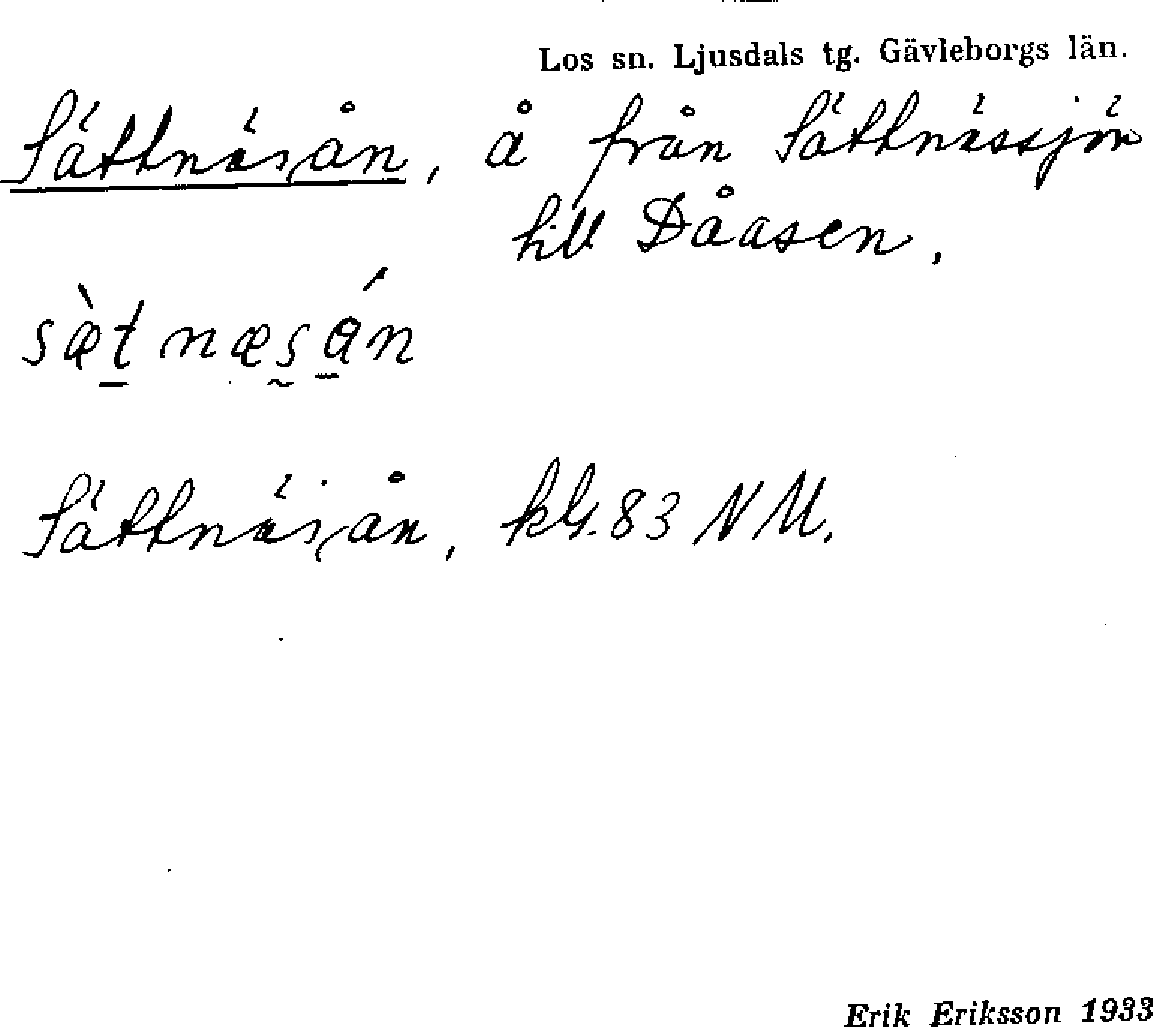 Los sn. Ljusdals tg. Gävleborgs län.
Sättnäsån, å från Sättnässjön
till Dåasen.
sæ̀t næsá̱n
Sättnäsån, kbl. 83 NM.
Erik Eriksson 1933